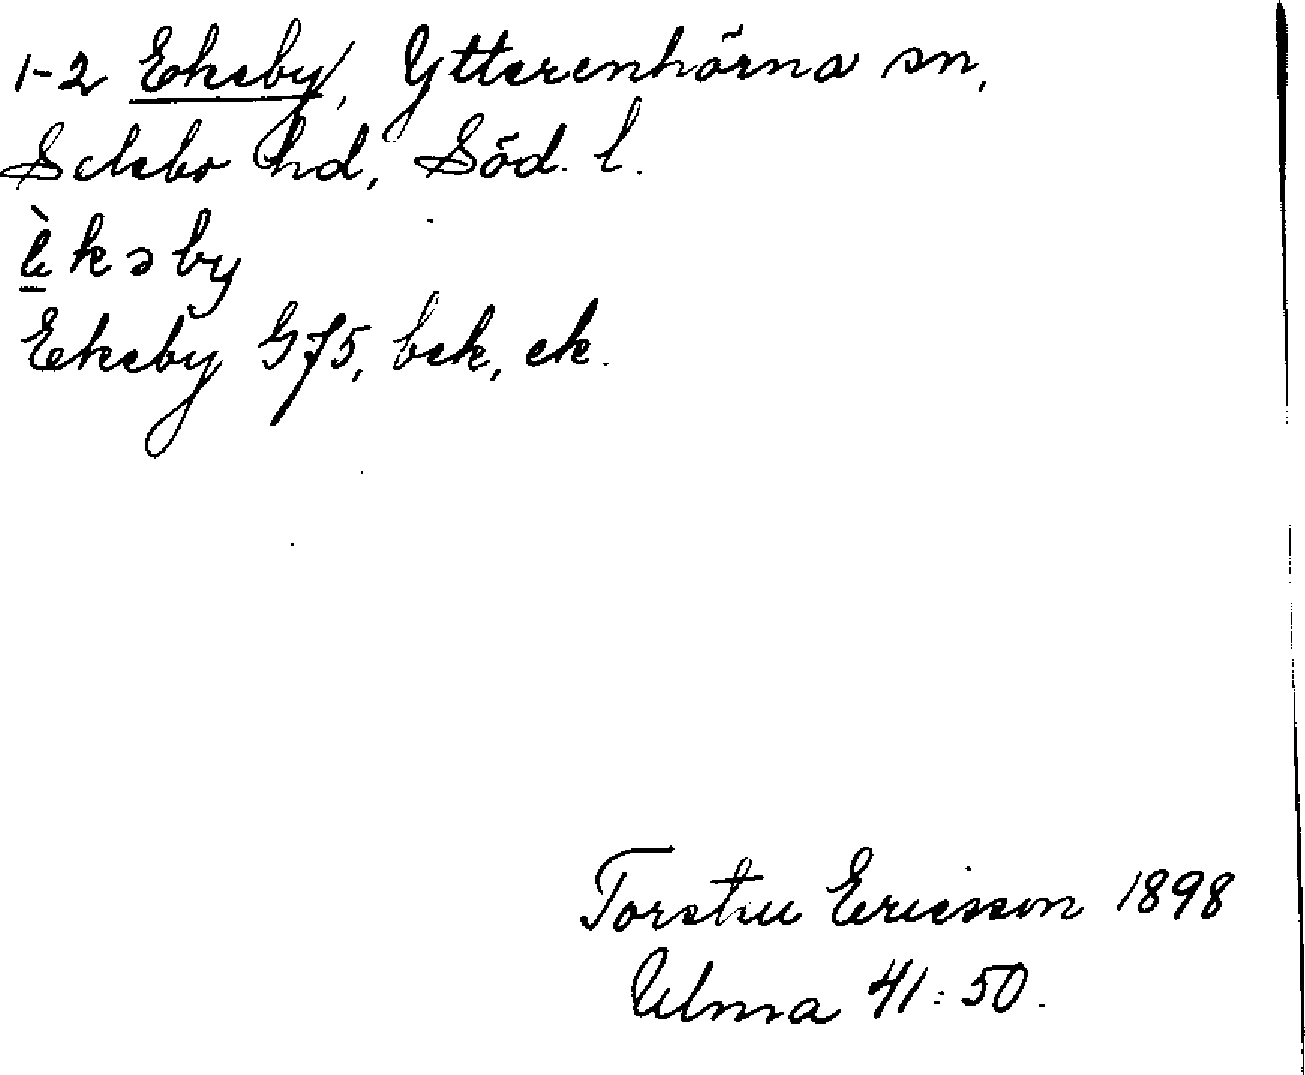 1-2 Ekeby, Ytterenhörna sn,
Selebo hd, Söd. l.
è̱kəby
Ekeby G75, bek, ek.
Torsten Ericsson 1898
Ulma 41:50.